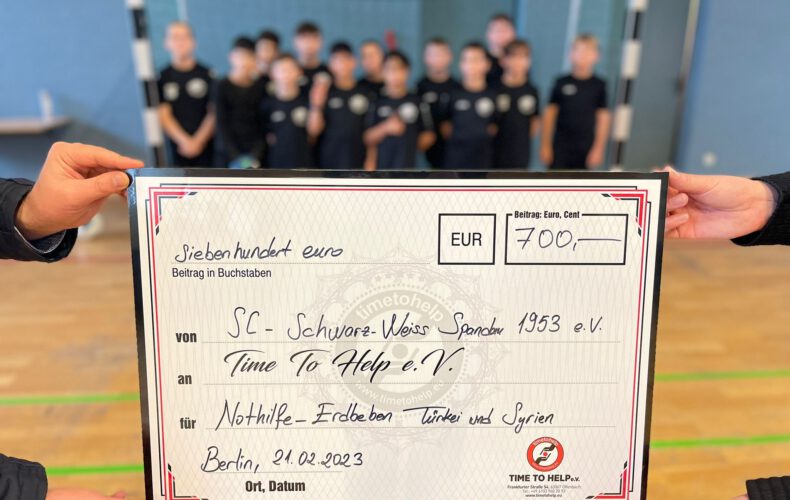 Beitrag: Euro, Cent
siebenhundert euro EUR 700,—
Beitrag in Buchstaben
timetohelp
von SC - Schwarz-Weiss Spandau 1953 e.V.
an Time To Help e.V.
www.timetohelp.eu
für Nothilfe - Erdbeben Türkei und Syrien
Berlin, 21.02.2023
Ort, Datum
timetohelp
TIME TO HELP e.V.
Frankfurter Straße 54, 63067 Offenbach
www.timetohelp.eu